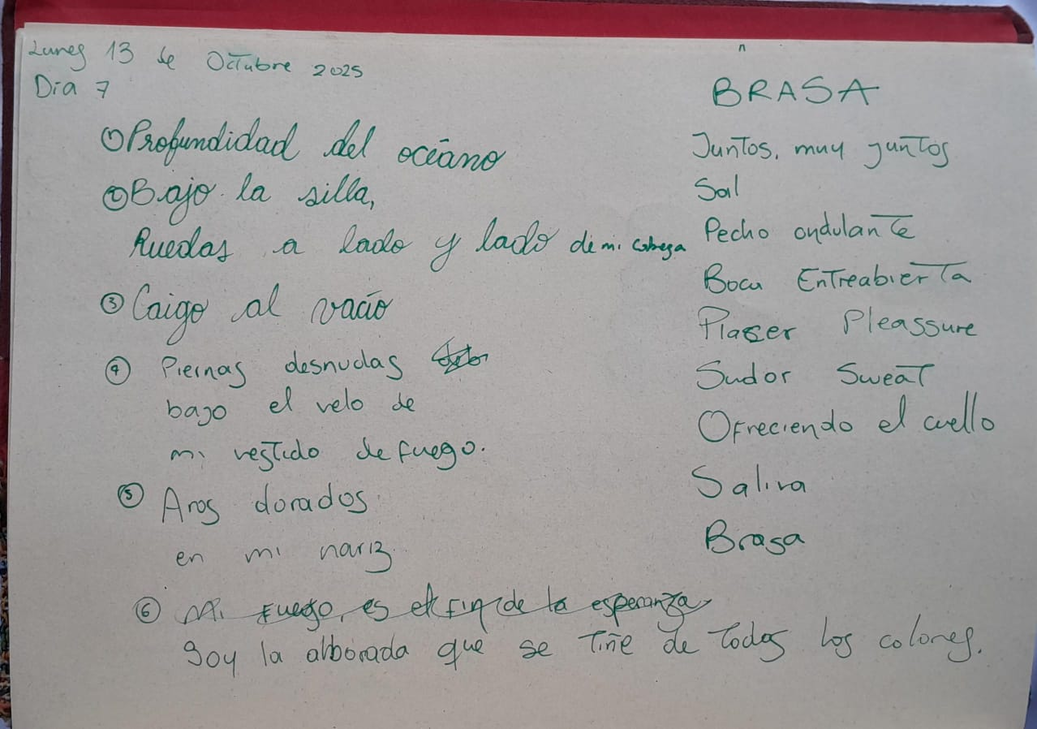 Lunes 13 de Octubre 2025
Día 7
① Profundidad del océano
② Bajo la silla,
Ruedas a lado y lado de mi cabeza
③ Caigo al vacío
④ Piernas desnudas
bajo el velo de
mi vestido de fuego.
⑤ Aros dorados
en mi nariz.
⑥ Mi fuego, es el fin de la esperanza
Soy la alborada que se tiñe de todos los colores.
BRASA
Juntos, muy juntos
Sal
Pecho ondulante
Boca Entreabierta
Placer Pleassure
Sudor Sweat
Ofreciendo el cuello
Saliva
Brasa